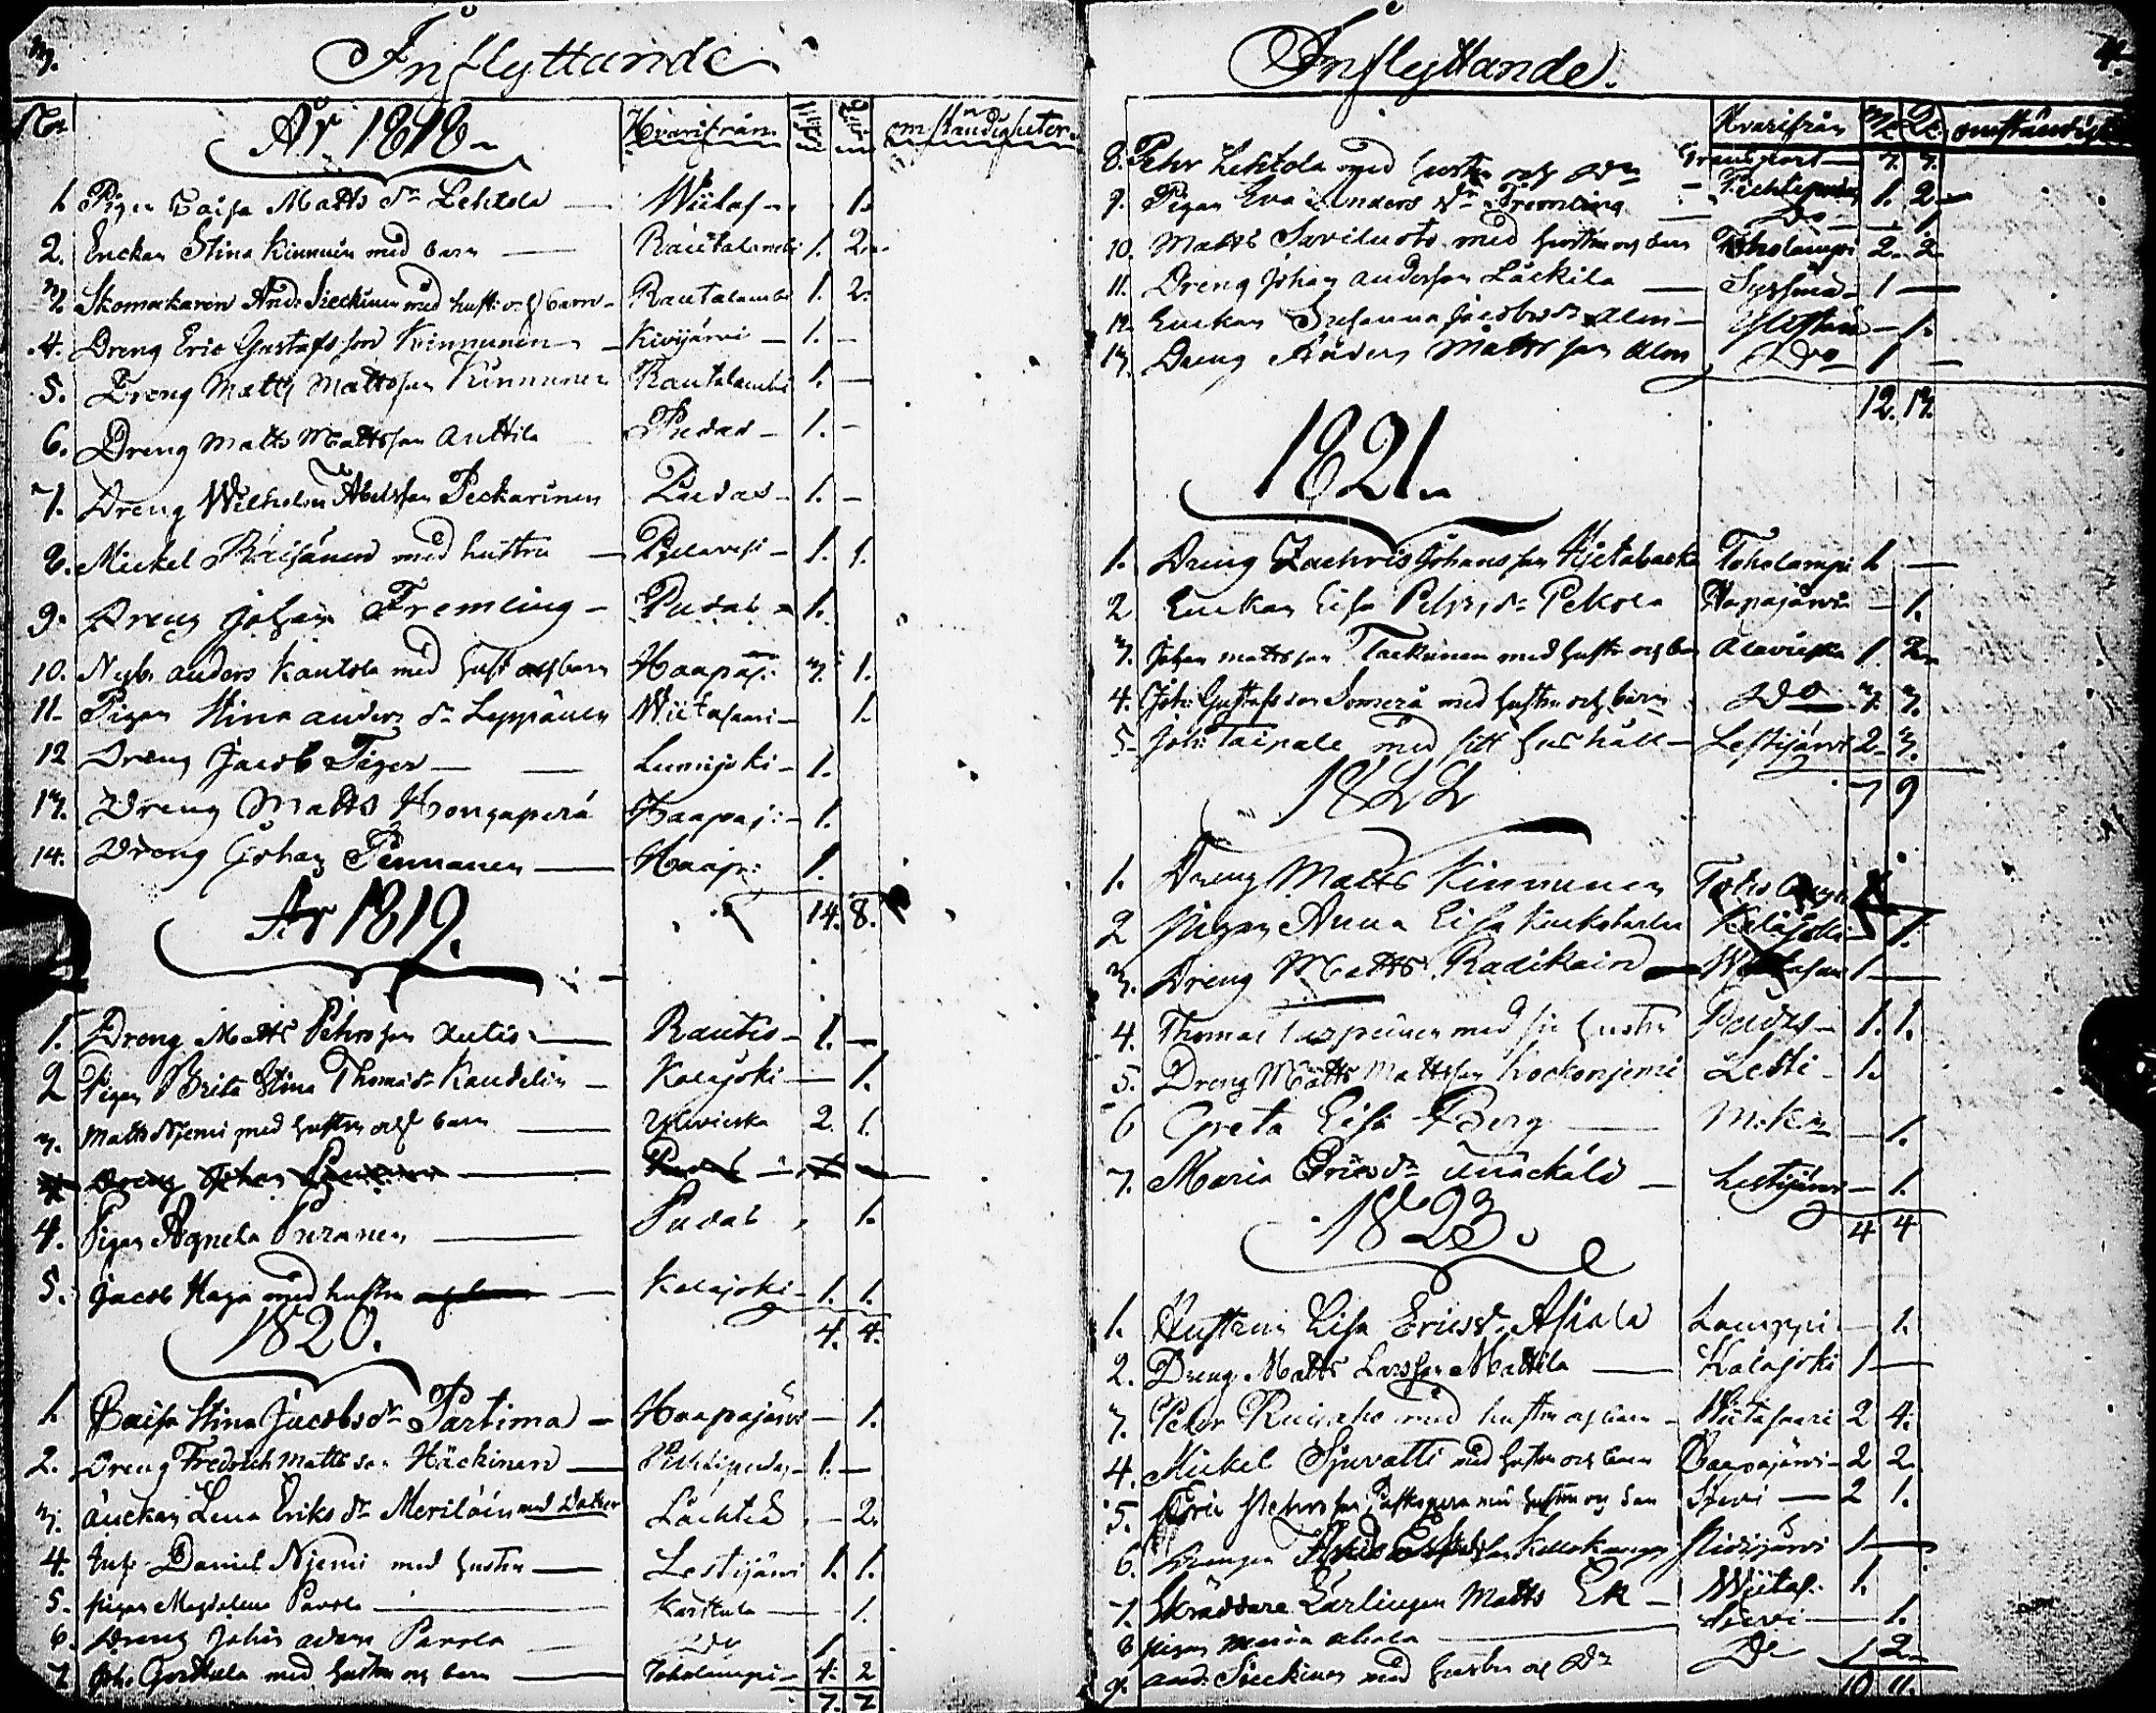 3.
Inflyttande
No År 1818 Hvarifrån omständigheter
1. Pigan Caisa Matts dr Lehtola — Wiitas. 1.
2. Enckan Stina Kinnuin med barn — Rautalambi 1. 2.
3. Skomakaren And: Sieckinen med hust: och barn Rautalambi 1. 2.
4. Dreng Eric Gustafsson Kinnunen — Kivijärvi — 1. —
5. Dreng Matts Mattsson Kinnunen Rautalambi 1. —
6. Dreng Matts Mattsson Anttila Pudas — 1. —
7. Dreng Wilhelm Abelsson Peckarinen Pudas — 1. —
8. Mickel Räisänen med hustru — Pielavesi — 1. 1.
9. Dreng Johan Fremling — Pudas 1.
10. Nyb. Anders Kantola med hust och barn Haapaj: 3. 1.
11. Pigan Stina Anders dr Leppänen Wiitasaari — 1.
12 Dreng Jacob Tiger — — Lumijoki — 1.
13. Dreng Matts Hongaperä Haapaj: — 1.
14. Dreng Johan Pennanen — Haap: 1.
14. 8.
År 1819.
1. Dreng Matts Pehrsson Autio — Rautio — 1. —
2 Pigan Brita Stina Thomas dr Kandelin — Kalajoki — 1.
3. Matts Njemi med hustru och barn — Ylivieska 2. 1.
Dreng Johan — Pudas — —
4. Pigan Agneta Puranen — Pudas 1.
5. Jacob Haga med hustru — Kalajoki — 1. 1.
4. 4.
1820.
1. Caisa Stina Jacobs dr Partima — Haapajärvi — 1.
2. Dreng Fredrich Mattsson Häckinen — Pichtipudas — 1. —
3. Änckan Lena Eriks dr Meriläin med dotter Lachtis — 2.
4. Inh. Daniel Njemi med hustru — Lestijärvi 1. 1.
5. pigan Magdalena Parola — Karstula — 1.
6. Dreng Johan Adam Parola — Do 1
7. Joh. Gorttula med hustru och barn — Toholampi — 4. 2
7. 7.
4.
Inflyttande.
Hvarifrån omständigh
Transport — 7. 7.
8. Pehr Lehtola med hustru och dr — Pichtipudas 1. 2 —
9. Pigan Eva Anders dr Fremling — Do — 1
10. Matts Saviluoto med hustru och barn Toholampi 2. 2
11. Dreng Johan Andersson Läckila — Sysmä — 1 —
12. Enckan Susanna Jacobs dr Alm — — 1.
13. Dreng Anders Mattsson Alm Do 1 —
12. 13.
1821.
1. Dreng Zachris Johansson Hietabacka Toholampi 1. —
2 Enckan Lisa Pehrs dr Pekola Hapajärvi — 1.
3. Johan Mattsson Tackinen med hustr och barn Alavieska 1. 2.
4. Joh: Gustafsson Somerä med hustru och barn Do 3. 3.
5. Joh: Taipale med sitt hushåll — Lestijärvi 2 — 3.
7 9
1822
1. Dreng Matts Kinnunen Toholampi 1 —
2 Pigan Anna Lisa Kalajoki — 1.
3. Dreng Matts Radikain — Witasari 1 —
4. Thomas med sin hustru Pudas — 1. 1.
5. Dreng Matts Mattsson Kockonjemi Lesti — 1.
6 Greta Lisa Berg — — 1.
7. Maria Erics dr — Lestijärvi — 1.
4 4
1823.
1. Hustrun Lisa Erics dr Asiala Lamppi — 1.
2. Dreng Matts Larsson Mattila — Kalajoki 1 —
3. Petter Ruisaho med hustru och barn — Wiitasaari 2 4.
4. Mickel Sjuvatti med hustru och barn Haapajärvi — 2 2.
5. Eric Pehrsson med hustru och barn Sievi — 2 1.
6. Drengen Kellokangas Pidisjärvi 1 —
7. Skräddare Lärlingen Matts Ek — Wiitas. 1.
8 pigan Maria Ahola — Sievi — 1.
9. And: Sieckinen med hustru och dr Do 1 2.
10 11.